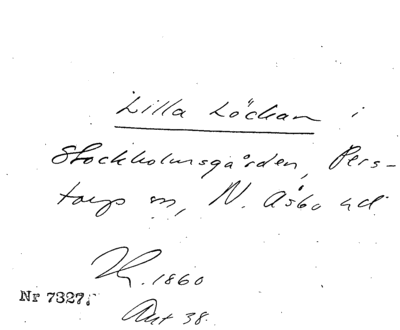 Lilla Löckan i
Stockholmsgården, Pers-
torps sn, N. Åsbo hd.
1860
Nr 7327.
Ant 38.